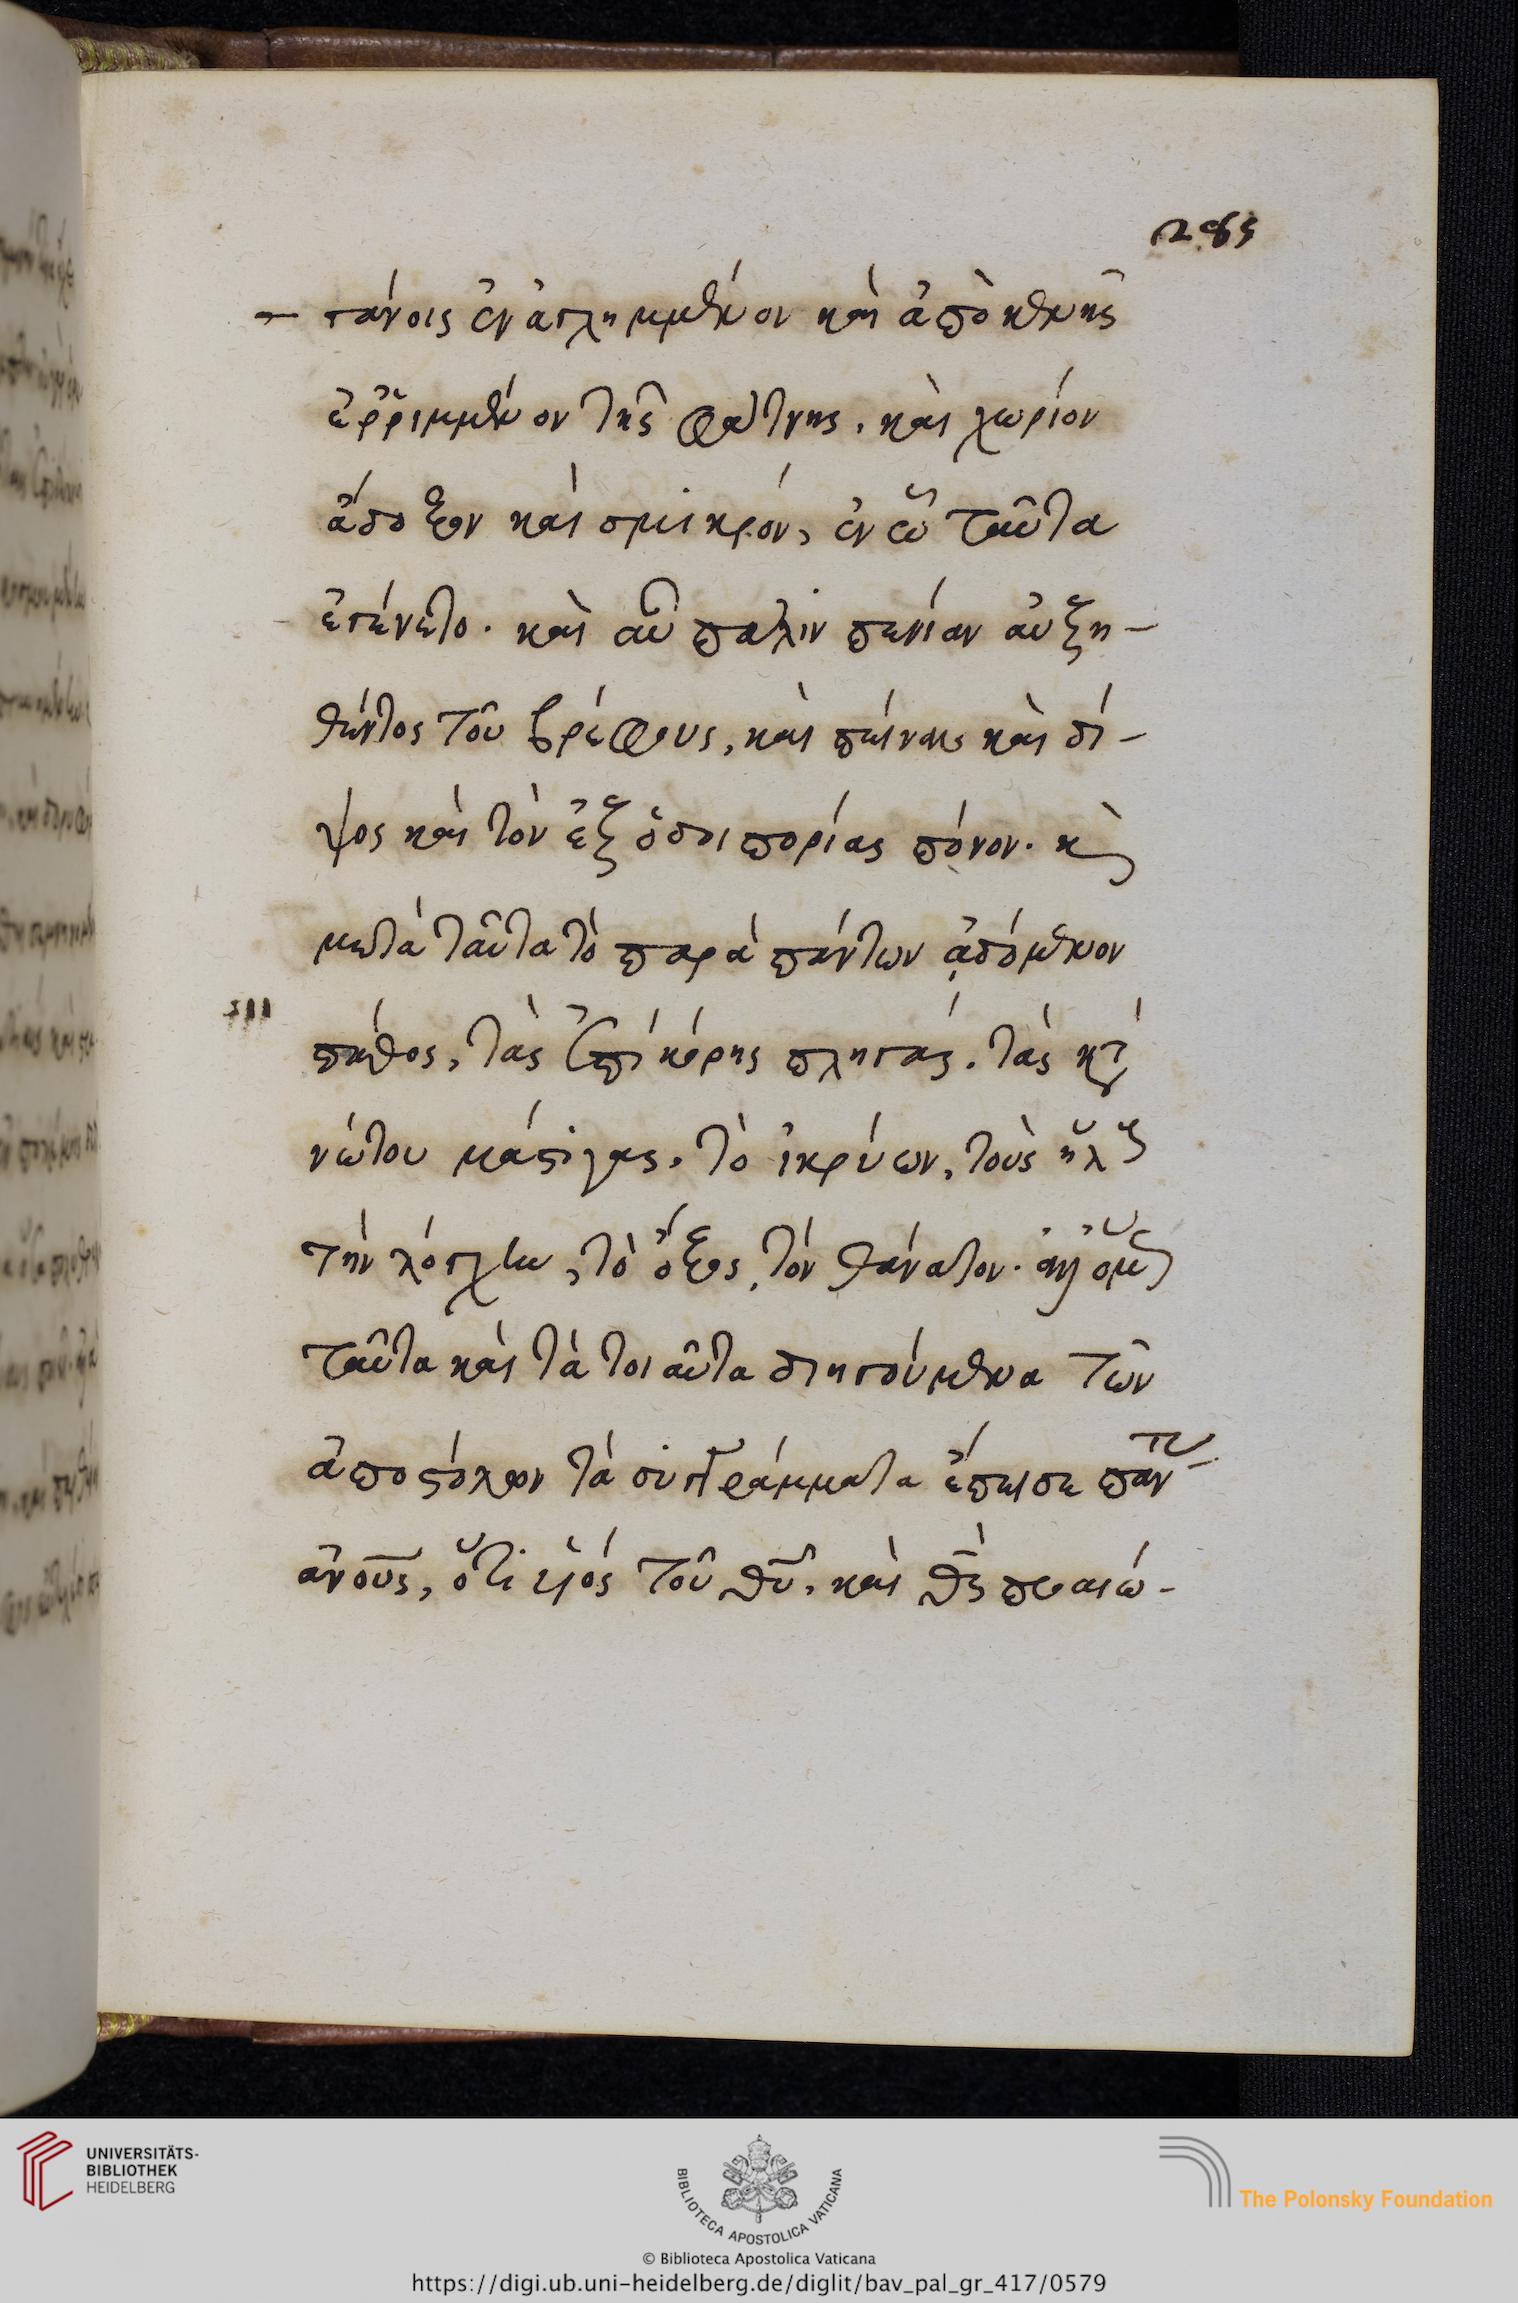 285
γάνοις ἐναπλημμένον καὶ ἀπὸ κενῆς
ἐῤῥιμμένον τῆς φάτνης. καὶ χωρίον
ἄδοξον καὶ σμικρόν, ἐν ᾧ ταῦτα
ἐγένετο. καὶ αὖ πάλιν πενίαν αὐξη-
θέντος τοῦ βρέφους, καὶ πείνας καὶ δί-
ψος καὶ τὸν ἐξ ὁδοιπορίας πόνον. κὶ
μετὰ ταῦτα τὸ παρὰ πάντων ᾀδόμενον
πάθος, τὰς ἐπὶ κόρης πληγάς. τὰς κτ
νώτου μάστιγας. τὸ ἰκρίων, τοὺς ἥλς
τὴν λόγχην, τὸ ὄξος, τὸν θάνατον. ἀλλ ὅμς
ταῦτα καὶ τὰ τοιαῦτα διηγούμενα τῶν
ἀποστόλων τὰ συγγράμματα ἔπεισε παντ
ἀνους, ὅτι υἱός τοῦ θυ, καὶ θς προαιώ-
UNIVERSITÄTS-
BIBLIOTHEK
HEIDELBERG
BIBLIOTECA APOSTOLICA VATICANA
The Polonsky Foundation
© Biblioteca Apostolica Vaticana
https://digi.ub.uni-heidelberg.de/diglit/bav_pal_gr_417/0579